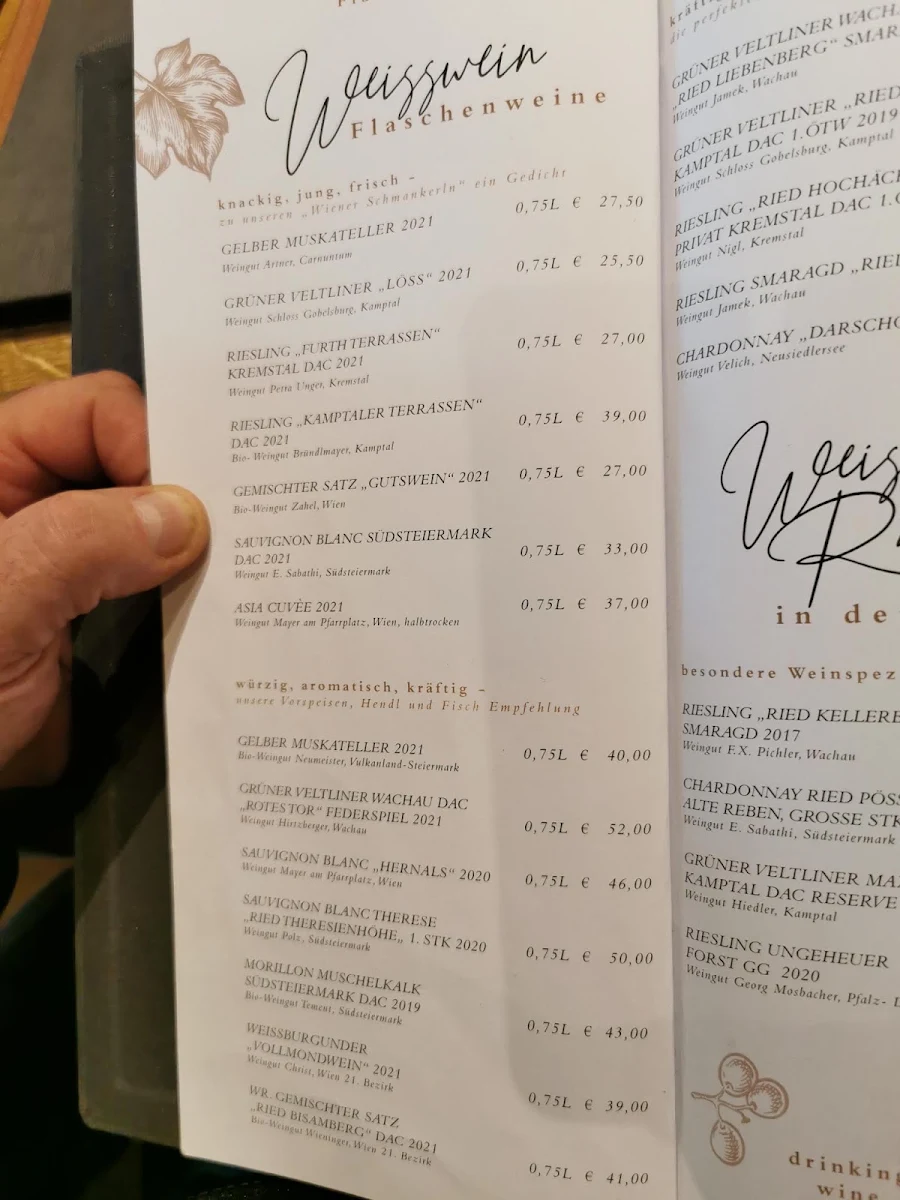 Weisswein
Flaschenweine
knackig, jung, frisch –
zu unseren „Wiener Schmankerln“ ein Gedicht
GELBER MUSKATELLER 2021 0,75L € 27,50
Weingut Artner, Carnuntum
GRÜNER VELTLINER „LÖSS“ 2021 0,75L € 25,50
Weingut Schloss Gobelsburg, Kamptal
RIESLING „FURTH TERRASSEN“
KREMSTAL DAC 2021 0,75L € 27,00
Weingut Petra Unger, Kremstal
RIESLING „KAMPTALER TERRASSEN“
DAC 2021 0,75L € 39,00
Bio- Weingut Bründlmayer, Kamptal
GEMISCHTER SATZ „GUTSWEIN“ 2021 0,75L € 27,00
Bio-Weingut Zahel, Wien
SAUVIGNON BLANC SÜDSTEIERMARK
DAC 2021 0,75L € 33,00
Weingut E. Sabathi, Südsteiermark
ASIA CUVÈE 2021 0,75L € 37,00
Weingut Mayer am Pfarrplatz, Wien, halbtrocken
würzig, aromatisch, kräftig –
unsere Vorspeisen, Hendl und Fisch Empfehlung
GELBER MUSKATELLER 2021 0,75L € 40,00
Bio-Weingut Neumeister, Vulkanland-Steiermark
GRÜNER VELTLINER WACHAU DAC
„ROTES TOR“ FEDERSPIEL 2021 0,75L € 52,00
Weingut Hirtzberger, Wachau
SAUVIGNON BLANC „HERNALS“ 2020 0,75L € 46,00
Weingut Mayer am Pfarrplatz, Wien
SAUVIGNON BLANC THERESE
„RIED THERESIENHÖHE„ 1. STK 2020 0,75L € 50,00
Weingut Polz, Südsteiermark
MORILLON MUSCHELKALK
SÜDSTEIERMARK DAC 2019 0,75L € 43,00
Bio-Weingut Tement, Südsteiermark
WEISSBURGUNDER
„VOLLMONDWEIN“ 2021 0,75L € 39,00
Weingut Christ, Wien 21. Bezirk
WR. GEMISCHTER SATZ
„RIED BISAMBERG“ DAC 2021 0,75L € 41,00
Bio-Weingut Wieninger, Wien 21. Bezirk
die
GRÜNER VELTLINER
„RIED LIEBENBERG“
Weingut Jamek, Wachau
GRÜNER VELTLINER „RIED
KAMPTAL DAC 1.ÖTW 2019
Weingut Schloss Gobelsburg, Kamptal
RIESLING „RIED
PRIVAT KREMSTAL DAC
Weingut Nigl, Kremstal
RIESLING SMARAGD „RIED
Weingut Jamek, Wachau
CHARDONNAY
Weingut Velich, Neusiedlersee
in
besondere
RIESLING „RIED
SMARAGD 2017
Weingut F.X. Pichler, Wachau
CHARDONNAY RIED
ALTE REBEN, GROSSE
Weingut E. Sabathi, Südsteiermark
GRÜNER VELTLINER
KAMPTAL DAC RESERVE
Weingut Hiedler, Kamptal
RIESLING UNGEHEUER
FORST GG 2020
Weingut Georg Mosbacher, Pfalz-
drinking
wine